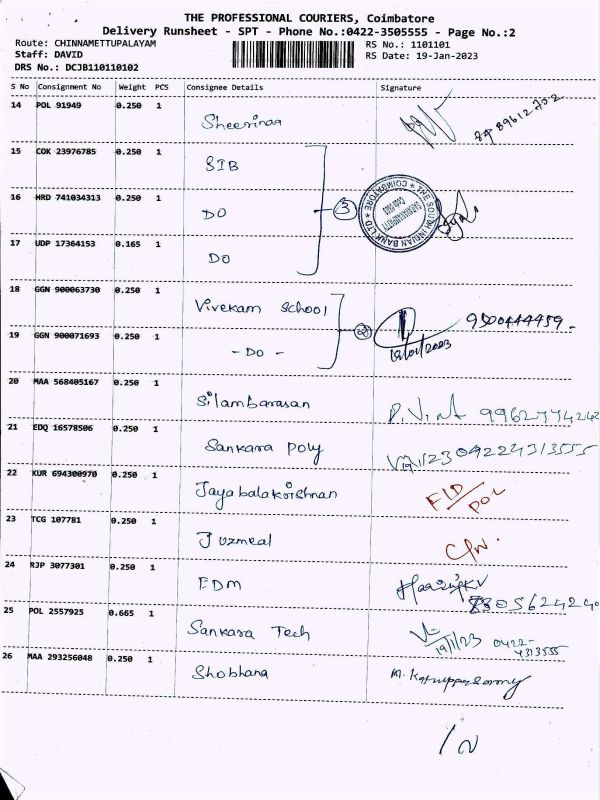 THE PROFESSIONAL COURIERS, Coimbatore
Delivery Runsheet - SPT - Phone No.:0422-3505555 - Page No.:2
Route: CHINNAMETTUPALAYAM
RS No.: 1101101
Staff: DAVID
RS Date: 19-Jan-2023
DRS No.: DCJB110110102
S No Consignment No Weight PCS Consignee Details Signature
14 POL 91949 0.250 1
15 COK 23976785 0.250 1 SIB
16 HRD 741034313 0.250 1 DO
3
THE SOUTH INDIAN BANK LTD COIMBATORE
17 UDP 17364153 0.165 1 DO
18 GGN 900063730 0.250 1 Vivekam School
2
19 GGN 900071693 0.250 1 - DO -
19/01/2023
20 MAA 568405167 0.250 1 Silambarasan
21 EDQ 16578506 0.250 1 Sankara Poly
22 KUR 694300970 0.250 1 Jayabalakrishnan
23 TCG 107781 0.250 1
24 RJP 3077301 0.250 1 EDM
25 POL 2557925 0.665 1 Sankara Tech
19/1/23 0422-
4313555
26 MAA 293256048 0.250 1 Shobhana